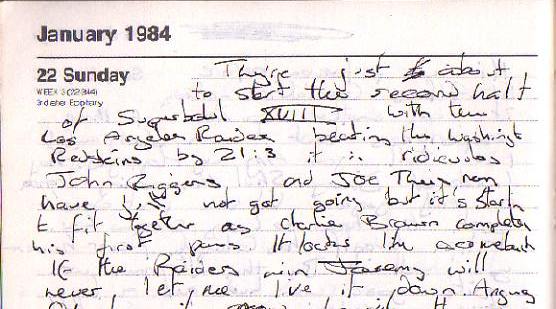 January 1984
22 Sunday
WEEK 3 (22-344)
3rd after Epiphany
They're just about
to start the second half
of Superbowl XVIII with the
Los Angeles Raiders beating the Washingt
Redskins by 21:3 it is ridiculous
John Riggens and Joe Theismann
have just not got going but it's startin
t fit together as Charlie Brown completes
his first pass. It looks like a comeback
If the Raiders win Jeremy will
never, let me live it down. Anyway